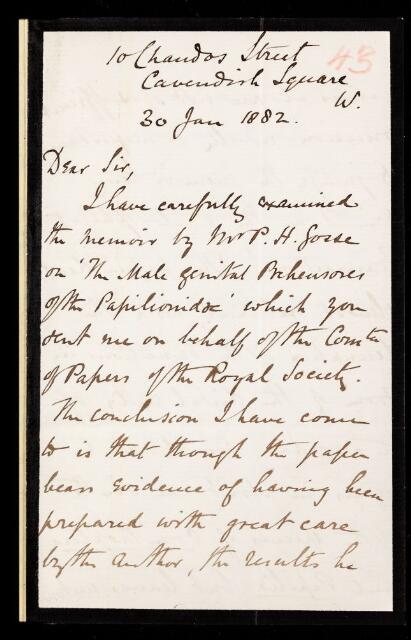 43
10 Chandos Street
Cavendish Square
W.
30 Jan 1882.
Dear Sir,
I have carefully examined
the memoir by Mr P. H. Gosse
on 'The Male genital Prehensores
of the Papilionidæ' which you
sent me on behalf of the Comtee
of Papers of the Royal Society.
The conclusion I have come
to is that though the paper
bears evidence of having been
prepared with great care
by the author, the results he